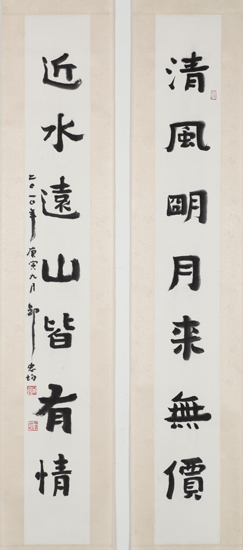 清風明月来無價
近水遠山皆有情
二〇一〇年庚寅九月鄒